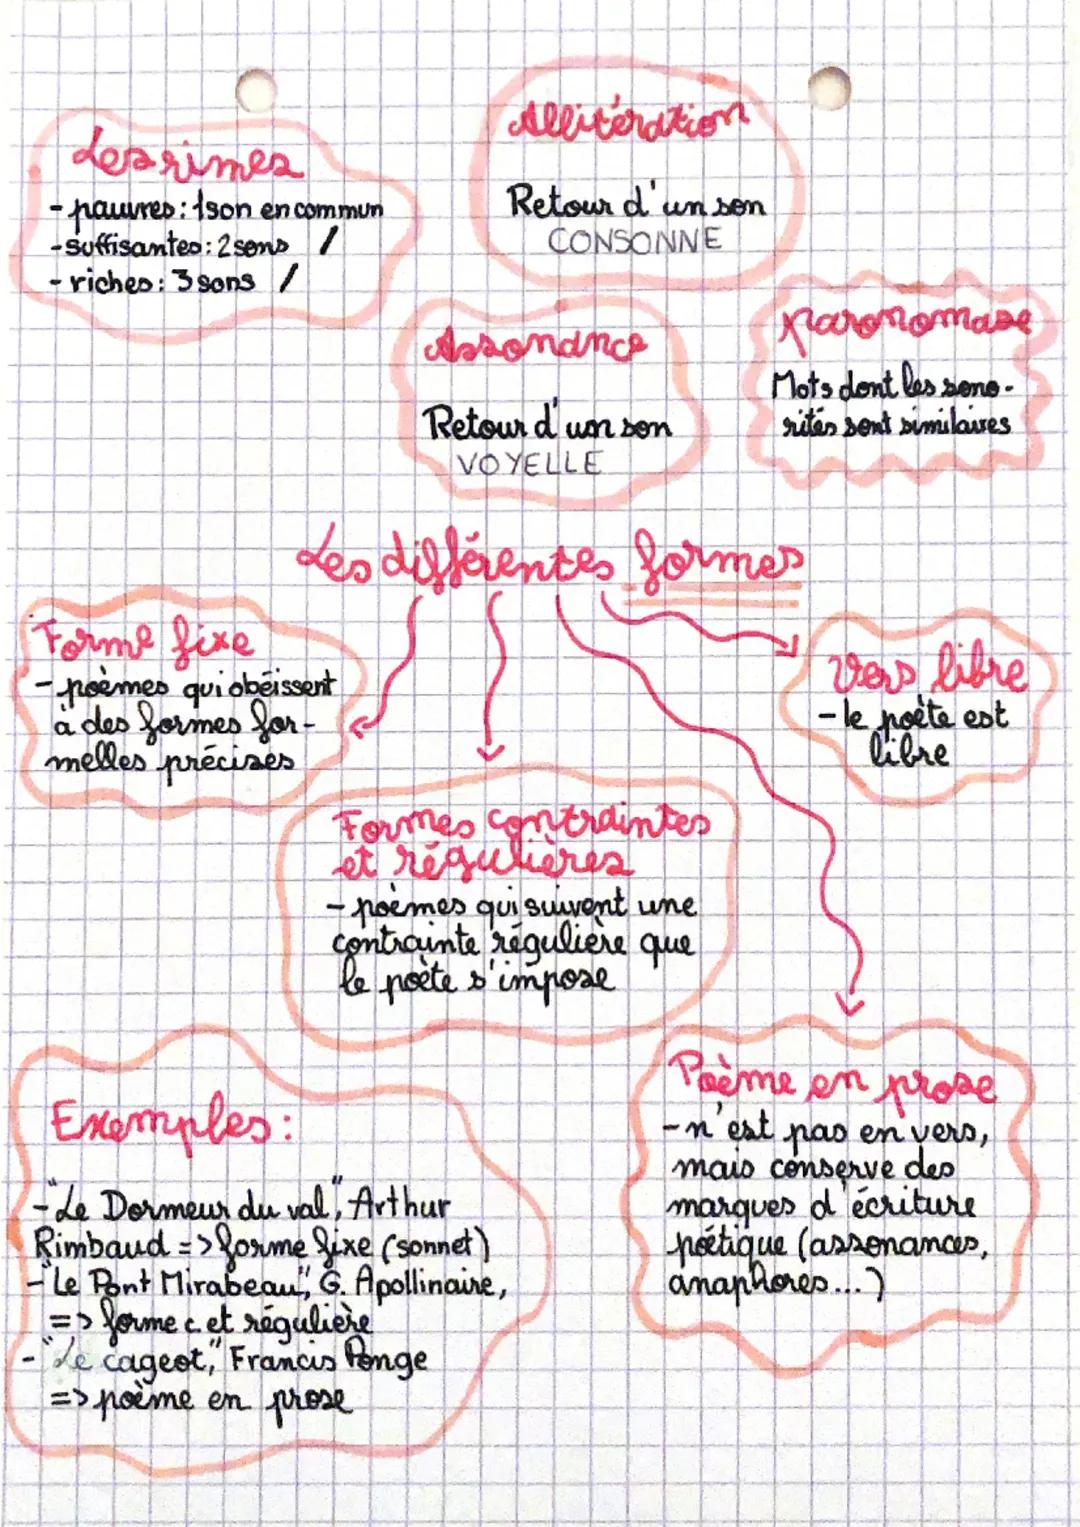 Les rimes
- pauvres : 1 son en commun
- suffisantes : 2 sons /
- riches : 3 sons /
Allitération
Retour d'un son
CONSONNE
Assonance
Retour d'un son
VOYELLE
Paronomase
Mots dont les sono-
rités sont similaires
Les différentes formes
Forme fixe
- poèmes qui obéissent
à des formes for-
melles précises
Vers libre
- le poète est
libre
Formes contraintes
et régulières
- poèmes qui suivent une
contrainte régulière que
le poète s'impose
Poème en prose
- n'est pas en vers,
mais conserve des
marques d'écriture
poétique (assonances,
anaphores...)
Exemples :
- "Le Dormeur du val", Arthur
Rimbaud => forme fixe (sonnet)
- "Le Pont Mirabeau", G. Apollinaire,
=> forme c. et régulière
- "Le cageot", Francis Ponge
=> poème en prose